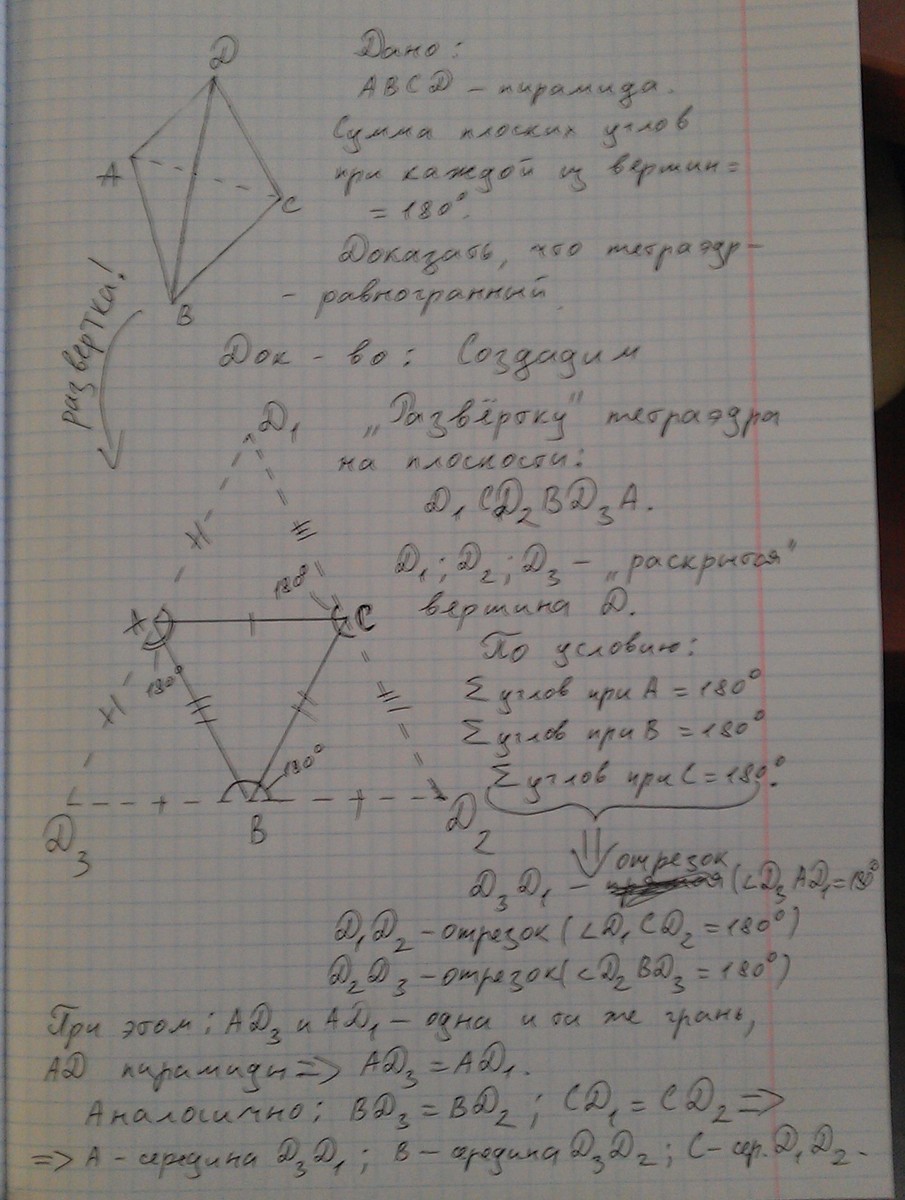 D
A
C
B
Дано:
ABCD – пирамида.
Сумма плоских углов
при каждой из вершин =
= 180°.
Доказать, что тетраэдр –
– равногранный.
развертка!
Док – во: Создадим
„Развёртку" тетраэдра
на плоскости:
D₁CD₂BD₃A.
D₁; D₂; D₃ – „раскрытая"
вершина D.
D₁
A
C
180°
180°
180°
D₃
B
D₂
По условию:
Σ углов при A = 180°
Σ углов при B = 180°
Σ углов при C = 180°.
D₃D₁ – отрезок (∠D₃AD₁=180°
D₁D₂ – отрезок (∠D₁CD₂ = 180°)
D₂D₃ – отрезок (∠D₂BD₃ = 180°)
При этом: AD₃ и AD₁ – одна и та же грань,
AD пирамиды => AD₃ = AD₁.
Аналогично: BD₃ = BD₂; CD₁ = CD₂ =>
=> A – середина D₃D₁; B – середина D₃D₂; C – сер. D₁D₂.